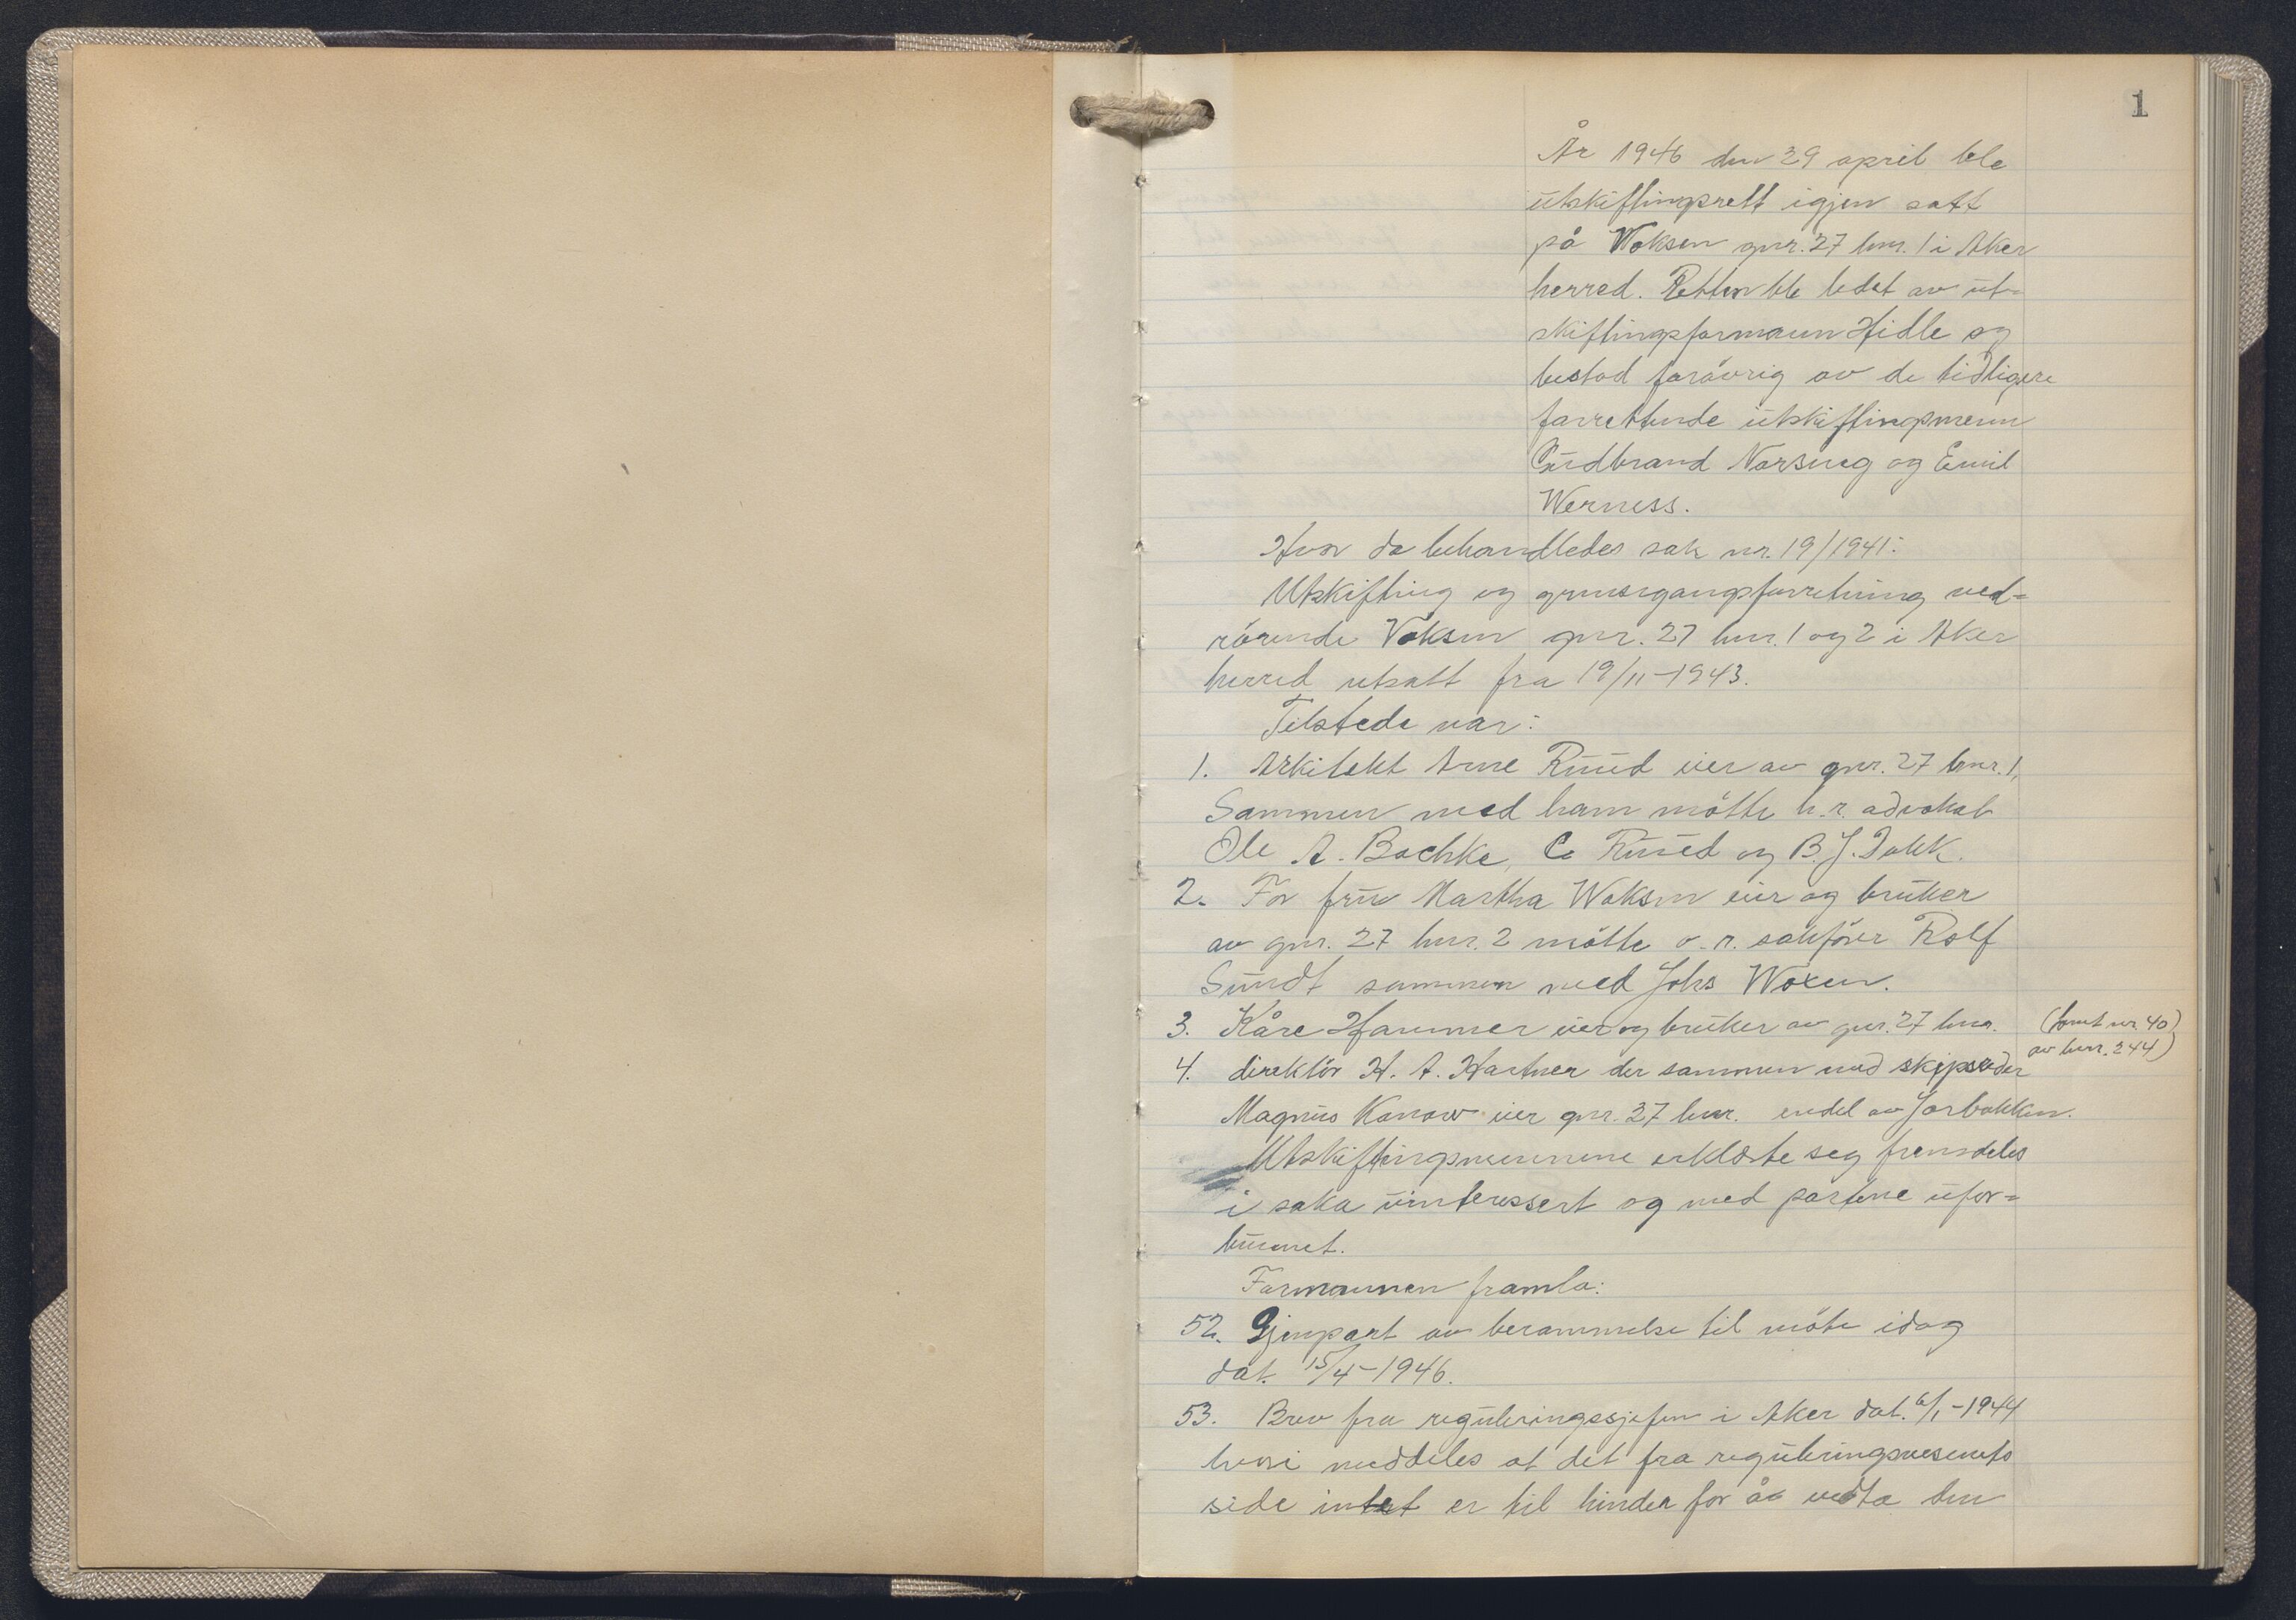 1
År 1946 den 29 april ble
utskiftingsrett igjen satt
på Woksen gnr. 27 bnr. 1 i Aker
herred. Retten ble ledet av ut-
skiftingsformann Hidle og
bestod forövrig av de tidligere
forrettende utskiftingsmenn
Gudbrand Norsveg og Emil
Werness.
Hvor da behandledes sak nr. 19/1941:
Utskifting og grensegangsforretning ved-
rörende Voksen gnr. 27 bnr. 1 og 2 i Aker
herred utsatt fra 19/11-1943.
Tilstede var:
1. Arkitekt Arne Ruud eier av gnr. 27 bnr. 1,
Sammen med ham mötte h.r. advokat
Ole A. Bachke, C. Ruud og B. J.
2. For fru Martha Woksen eier og bruker
av gnr. 27 bnr. 2 mötte o.r. sakförer Rolf
Sundt sammen med Johs Woxen.
3. Kåre Hammer eier og bruker av gnr. 27 bnr. (tomt nr. 40
av bnr. 244)
4. direktör H. A. Hartner der sammen med skipsreder
Magnus Konow eier gnr. 27 bnr. endel av Jarbakken.
Utskiftingsmennene erklærte seg fremdeles
i saka uinteressert og med partene ufor-
bunnet.
Formannen framla:
52. Gjenpart av berammelse til möte idag
dat. 15/4-1946.
53. Brev fra reguleringssjefen i Aker dat. 6/1-1944
hvori meddeles at det fra reguleringsvesenets
side intet er til hinder for å vedta den